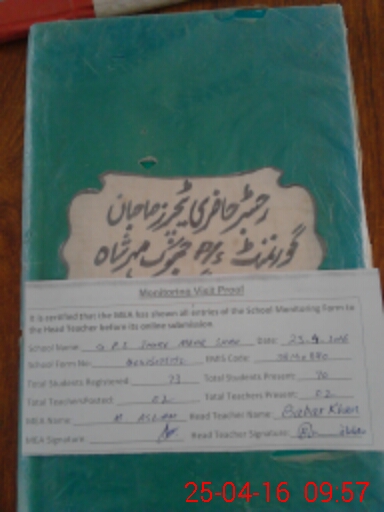 رجسٹر حاضری ٹیچرز صاحبان
گورنمنٹ P/S مہر شاہ
Monitoring Visit Proof
It is certified that the MEA has shown all entries of the School Monitoring Form to
the Head Teacher before its online submission.
School Name: G P S Mehr Shah Date: 25.4.2016
School Form No: EMIS Code:
Total Students Registered: 73 Total Students Present: 70
Total Teachers Posted: 02 Total Teachers Present: 02
MEA Name: M ASLAM Head Teacher Name: Bahar Khan
MEA Signature: Head Teacher Signature:
25-04-16 09:57